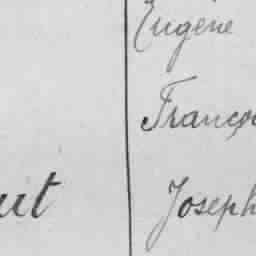 Eugène
Franço
ut Joseph